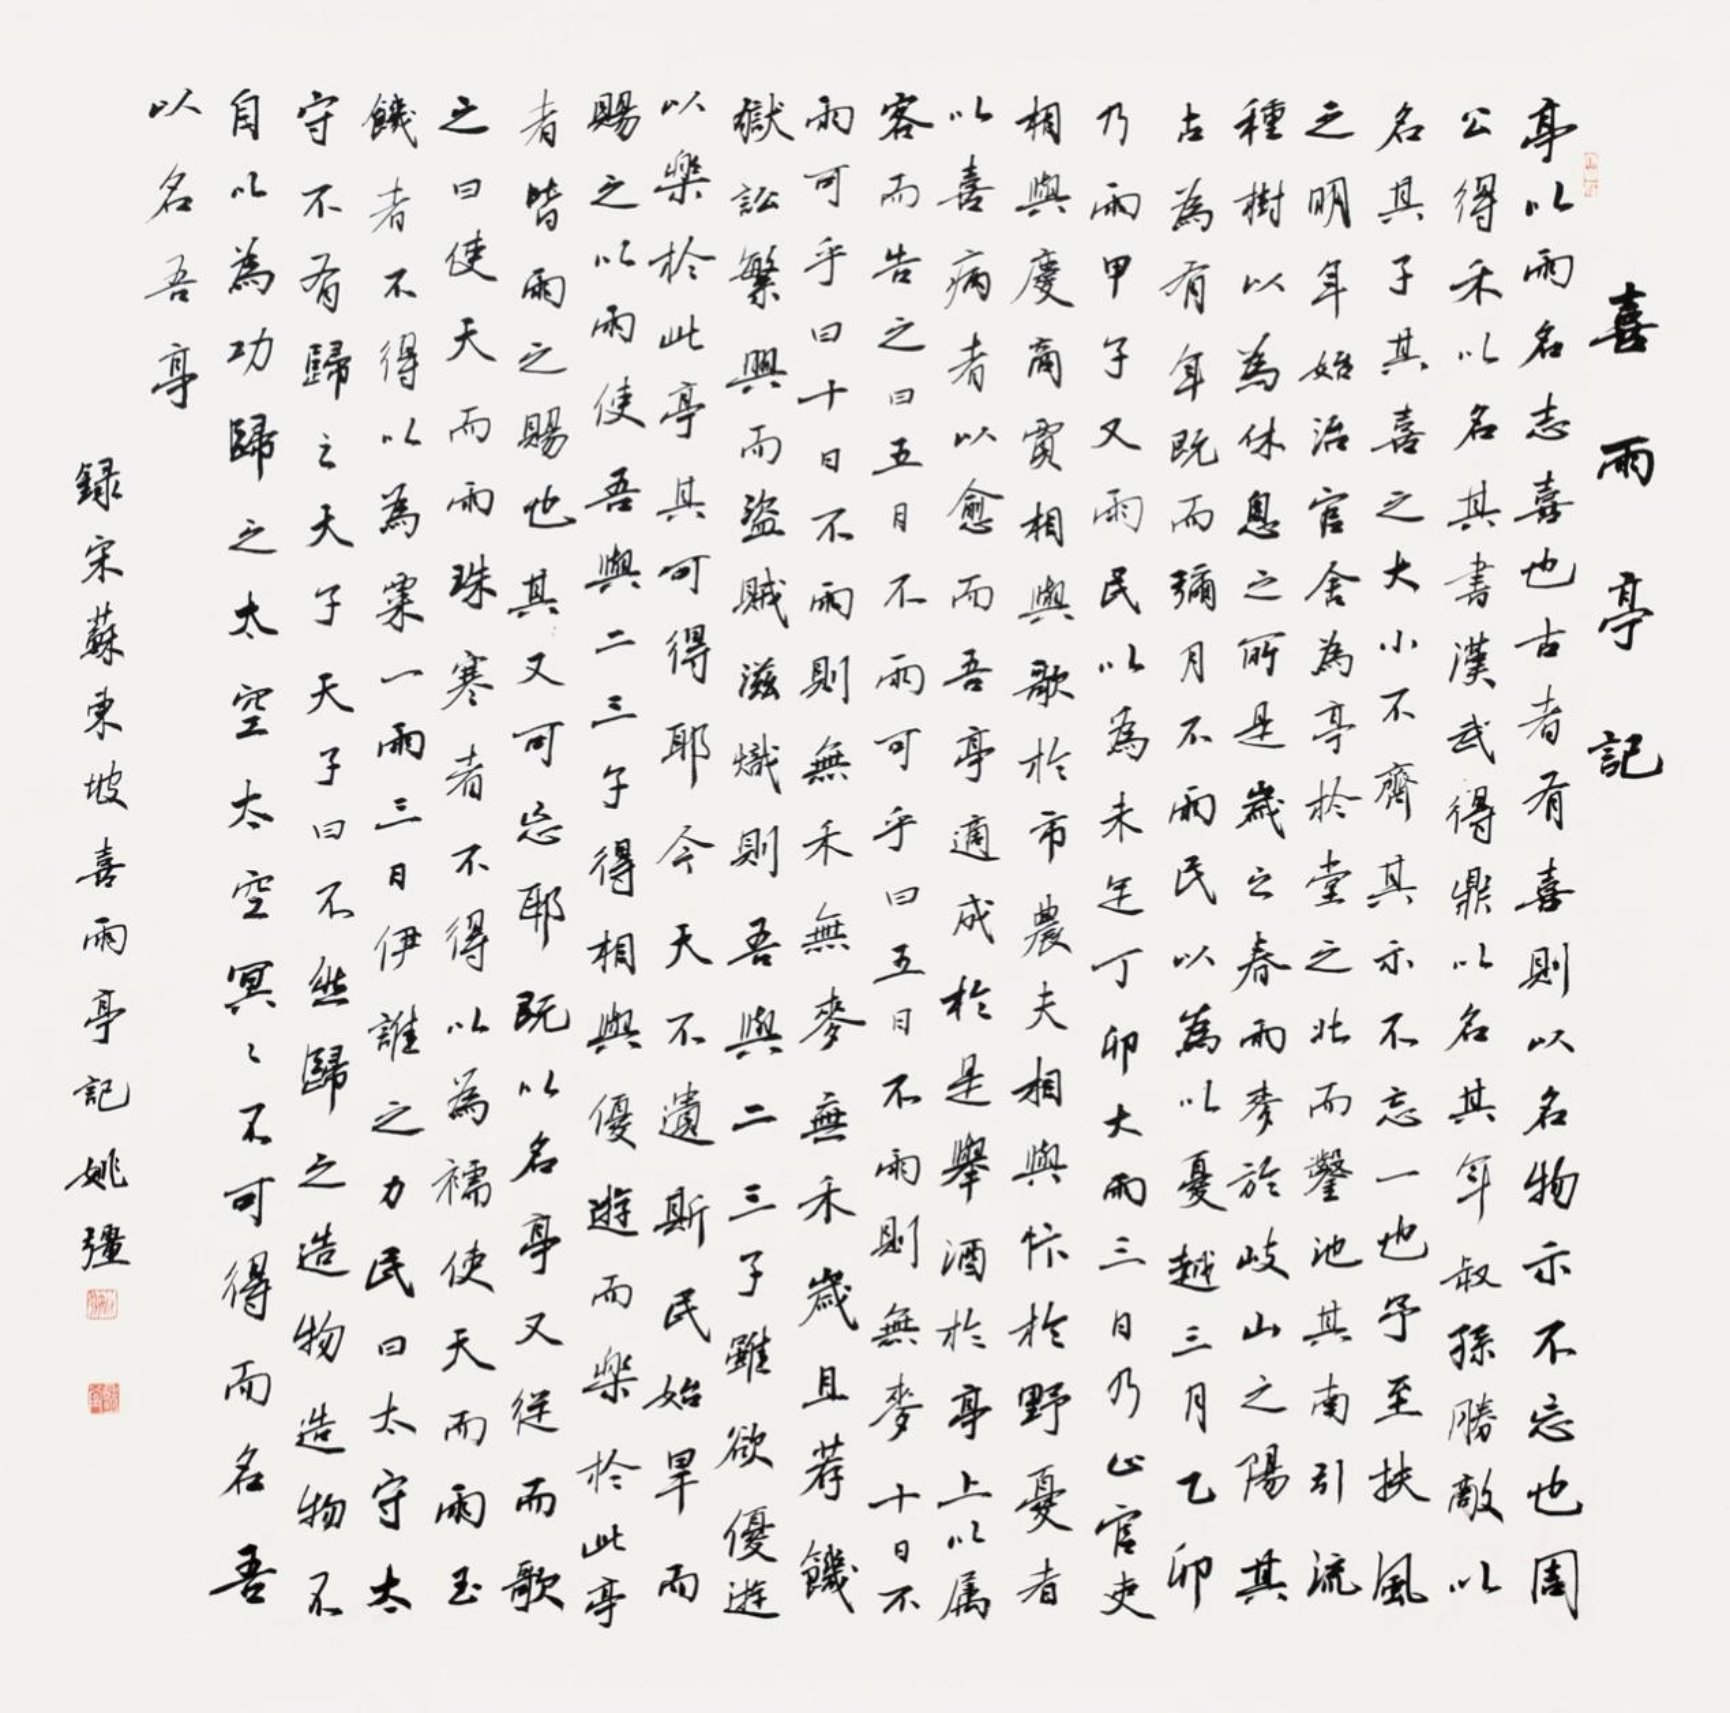 喜雨亭記
亭以雨名志喜也古者有喜則以名物示不忘也周
公得禾以名其書漢武得鼎以名其年叔孫勝敵以
名其子其喜之大小不齊其示不忘一也予至扶風
之明年始治官舍為亭於堂之北而鑿池其南引流
種樹以為休息之所是歲之春雨麥於岐山之陽其
占為有年既而彌月不雨民以為以憂越三月乙卯
乃雨甲子又雨民以為未足丁卯大雨三日乃止官吏
相與慶商賈相與歌於市農夫相與忭於野憂者
以喜病者以愈而吾亭適成於是舉酒於亭上以属
客而告之曰五月不雨可乎曰五日不雨則無麥十日不
雨可乎曰十日不雨則無禾無麥無禾歲且荐饑
獄訟繁興而盜賊滋熾則吾與二三子雖欲優遊
以樂於此亭其可得耶今天不遺斯民始旱而
賜之以雨使吾與二三子得相與優遊而樂於此亭
者皆雨之賜也其又可忘耶既以名亭又從而歌
之曰使天而雨珠寒者不得以為襦使天而雨玉
饑者不得以為粟一雨三日伊誰之力民曰太守太
守不有歸之天子天子曰不然歸之造物造物不
自以為功歸之太空太空冥々不可得而名吾
以名吾亭
録宋蘇東坡喜雨亭記姚疆